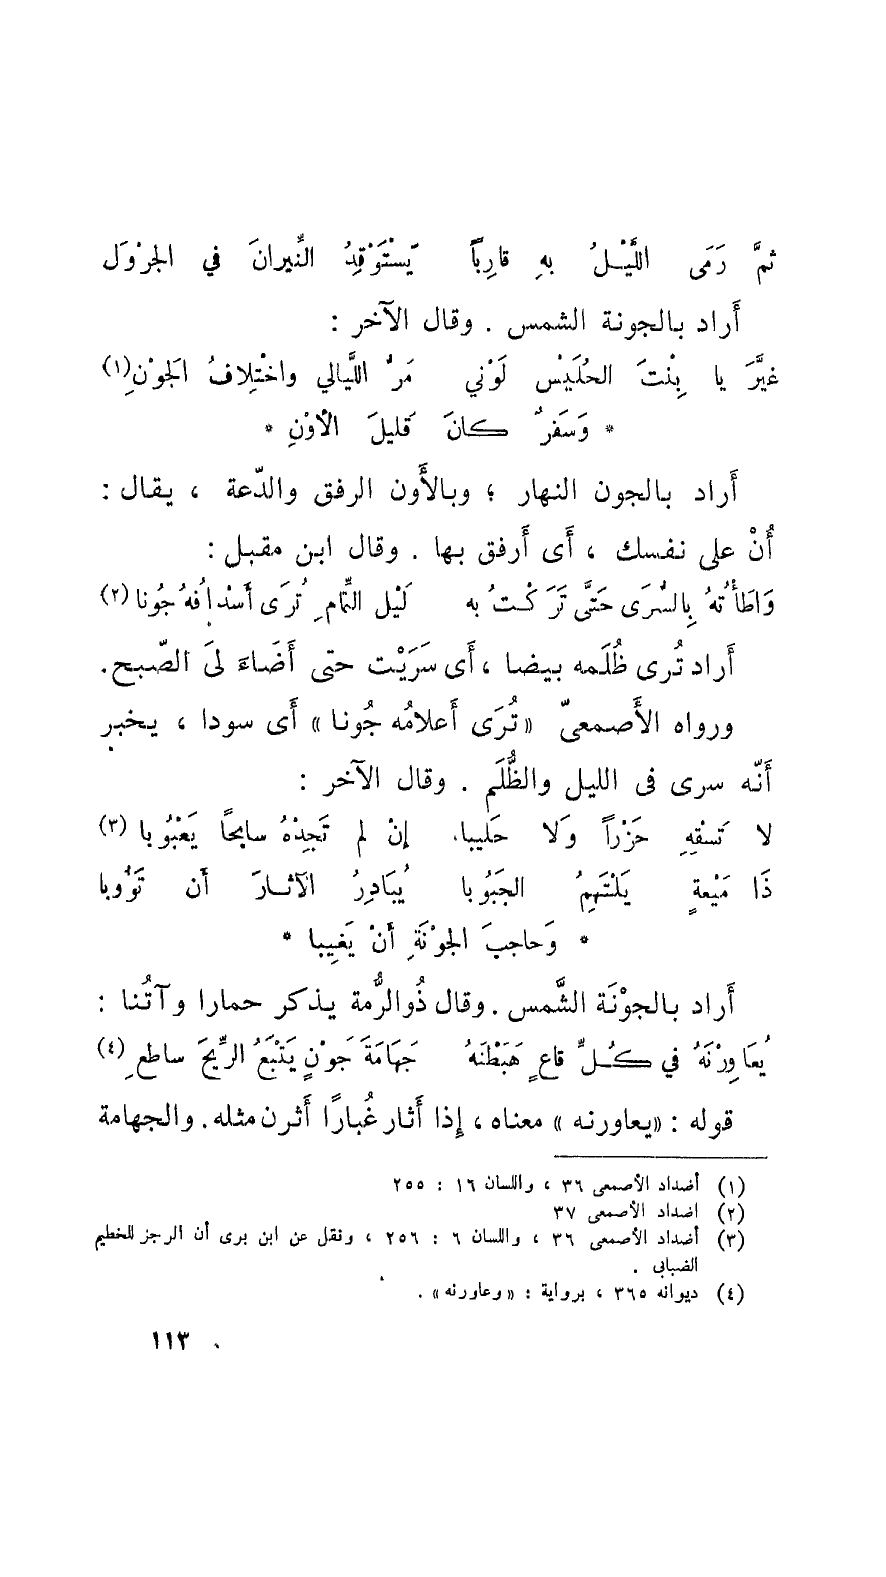 ثمَّ رَمَى اللَّيْـلُ بهِ قارِباً يَسْتَوْقِدُ النِّيرانَ في الجرْوَل
أَراد بالجونة الشمس . وقال الآخر :
غيَّرَ يا بِنْتَ الحُلَيْسِ لَوْني مَرُّ اللَّيالي واخْتِلافُ الجَوْنِ(١)
* وَسَفَرٌ كانَ قَليلَ الأَوْنِ *
أَراد بالجون النهار ؛ وبالأَون الرفق والدّعة ، يقال :
أُنْ على نفسك ، أَى أَرفق بها . وقال ابن مقبل :
وَاطَأْتُهُ بِالسُّرَى حَتَّى تَرَكْتُ به لَيْل التِّمامِ تُرَى أَسْدافُهُ جُونا(٢)
أَراد تُرى ظُلَمه بيضا ، أَى سَرَيْت حتى أَضَاءَ لىَ الصّبح.
ورواه الأَصمعىّ « تُرَى أَعلامُه جُونا » أَى سودا ، يخبر
أَنّه سرى فى الليل والظُّلَم . وقال الآخر :
لا تَسْقِهِ حَزْراً وَلا حَليبا إنْ لم تَجِدْهُ سابحًا يَعْبُوبا (٣)
ذَا مَيْعةٍ يَلْتَهِمُ الجَبُوبا يُبَادِرُ الآثـارَ أن تَؤُوبا
* وَحاجبَ الجوْنَةِ أَنْ يَغِيبا *
أَراد بالجوْنَة الشَّمس . وقال ذُوالرُّمة يذكر حمارا وآتُنا :
يُعَاوِرْنَهُ في كُلِّ قاعٍ هَبَطْنَهُ جَهَامَةَ جَوْنٍ يَتْبَعُ الرِّيحَ ساطعِ (٤)
قوله : «يعاورنه » معناه ، إذا أَثار غُبارًا أَثرن مثله . والجهامة
(١) أضداد الأصمعى ٣٦ ، واللسان ١٦ : ٢٥٥
(٢) اضداد الأصمعى ٣٧
(٣) أضداد الأصمعى ٣٦ ، واللسان ٦ : ٢٥٦ ، ونقل عن ابن برى أن الرجز للخطيم
الضبابى .
(٤) ديوانه ٣٦٥ ، برواية : « وعاورنه » .
١١٣